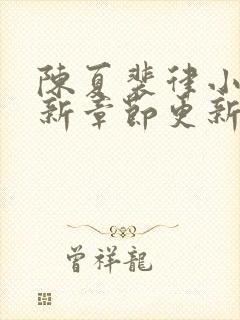 陳夏裴律小
新章節更新
曾祥龍